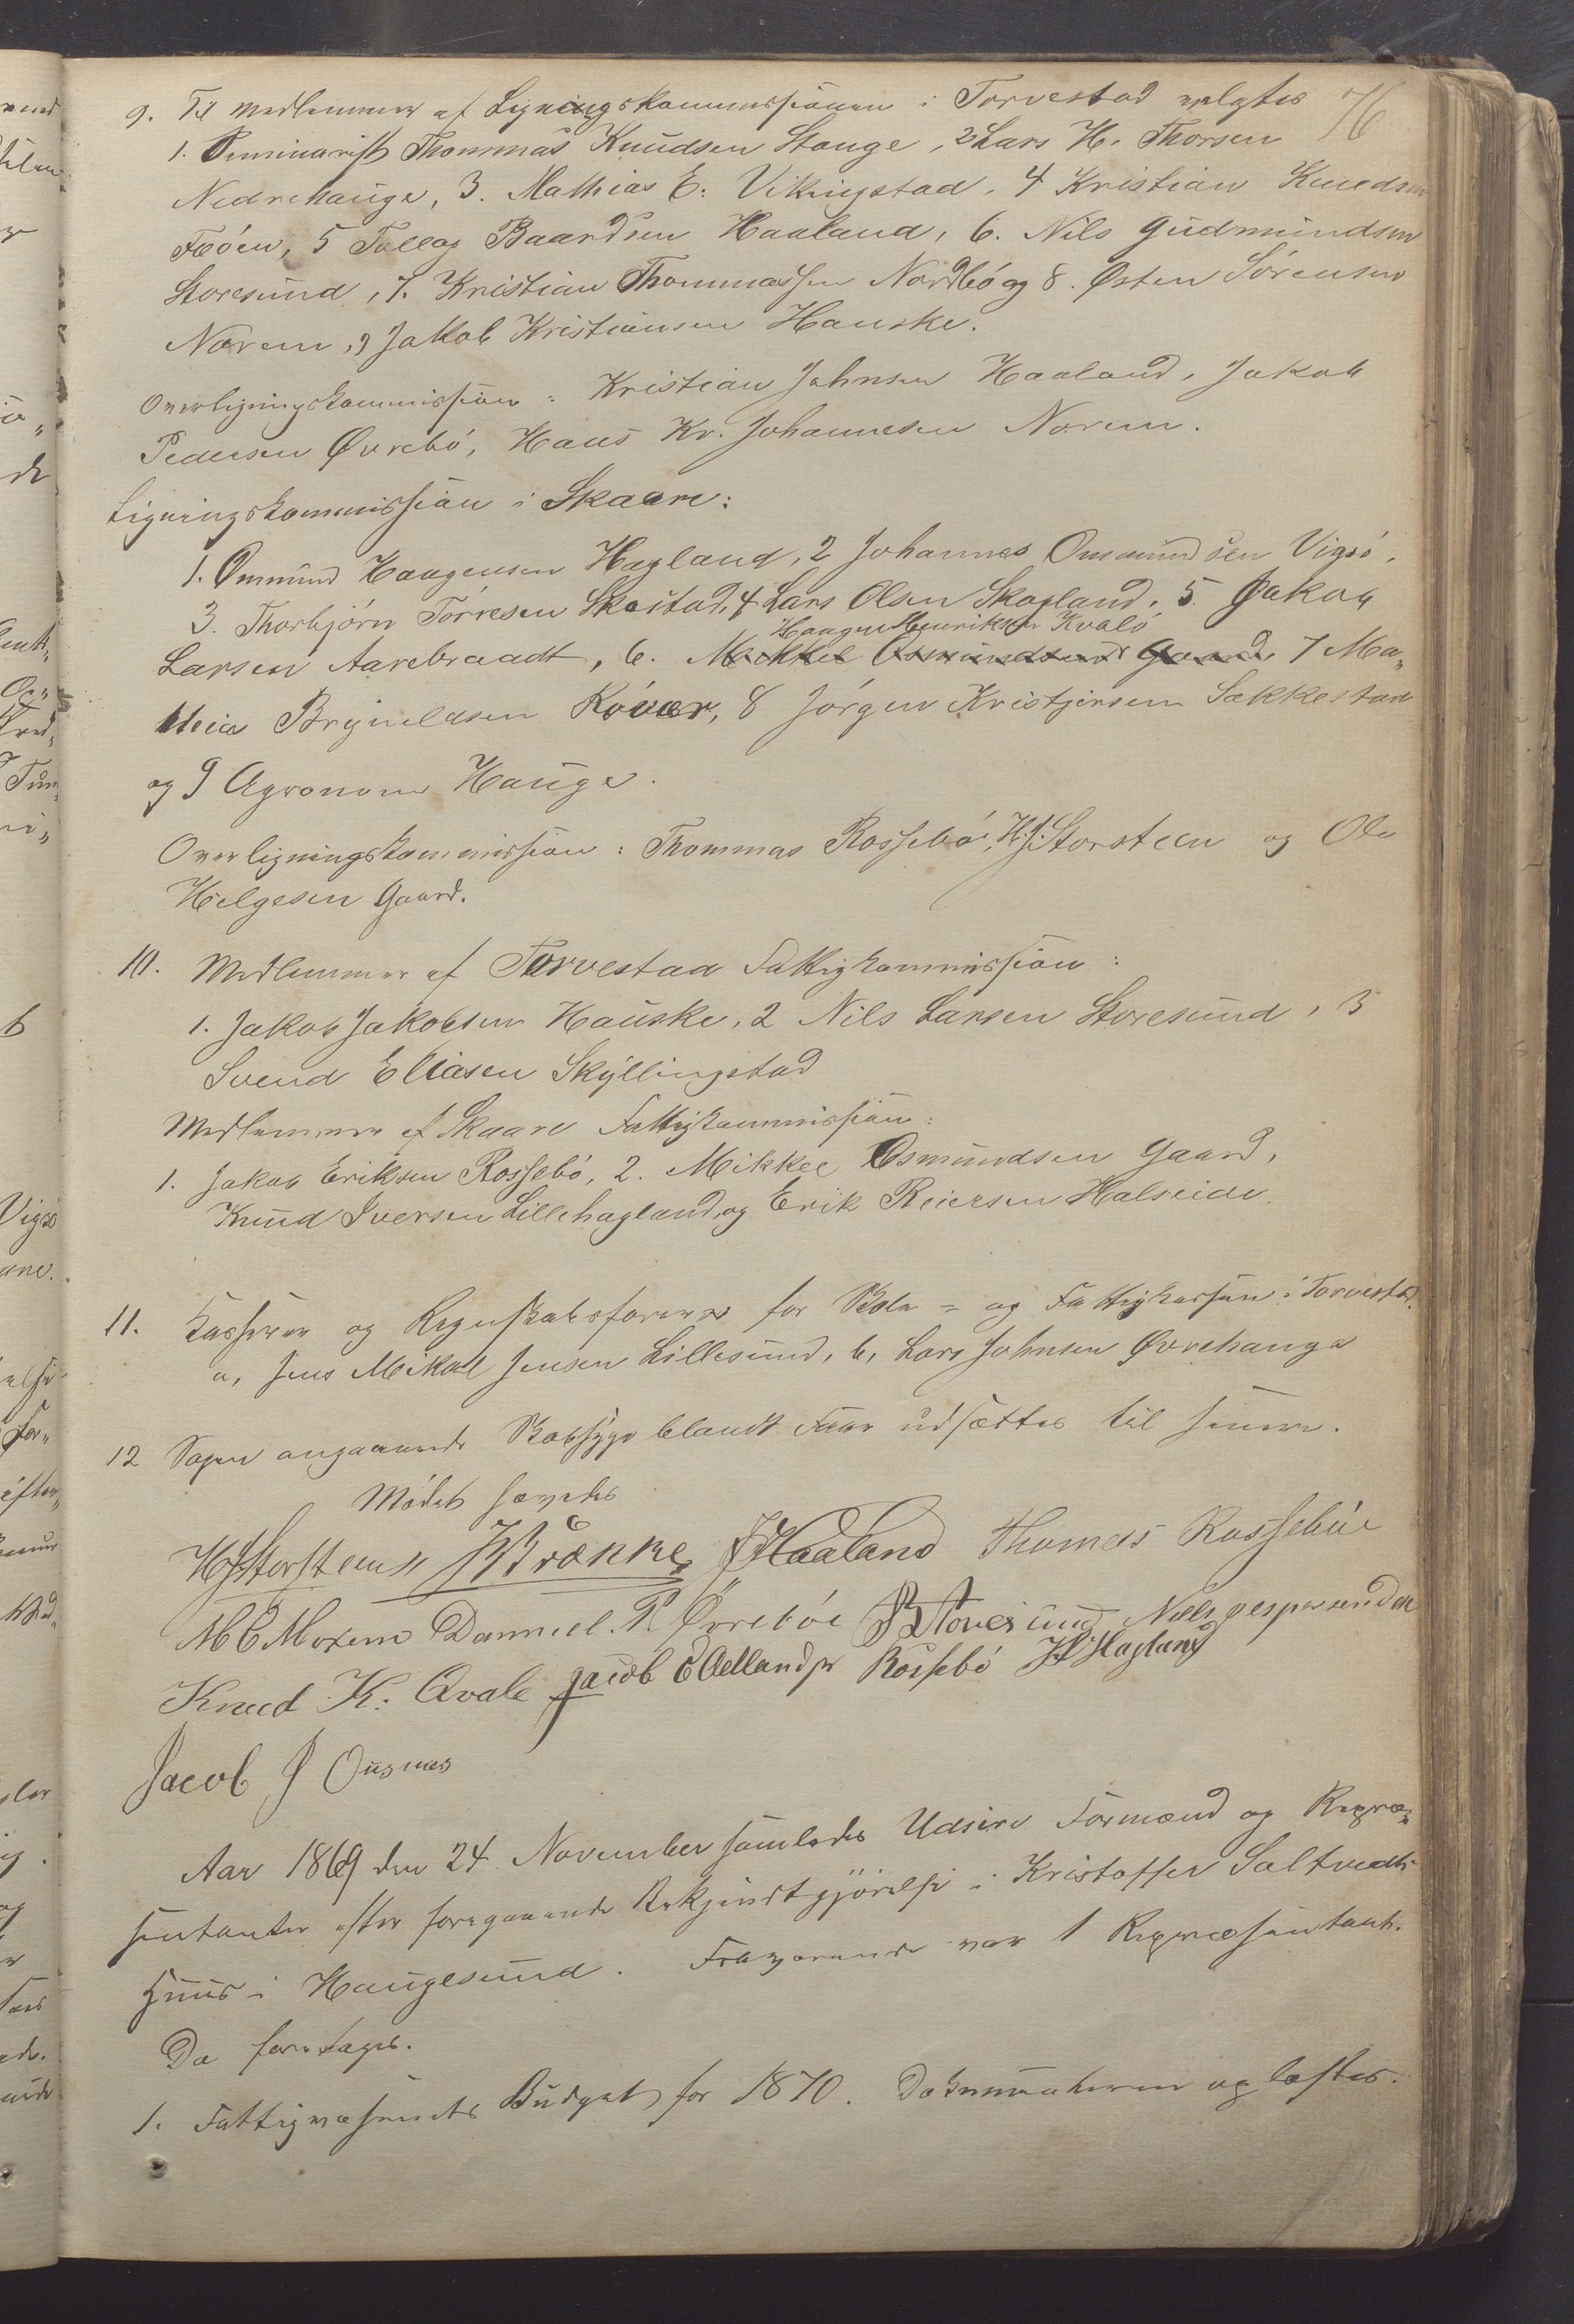 76
9. Til Medlemmer af Ligningskommissionen i Torvestad valgtes
1. Seminarist Thommas Knudsen Stange, 2 Lars H. Thorsen
Nedrehauge, 3. Mathias E. Vikingstad, 4 Kristian Knudsen
Fæøen, 5 Tollag Baardsen Haaland, 6. Nils Gudmundsen
Storesund, 7. Kristian Thommassen Nordbö og 8. Østen Sörensen
Norem, 9 Jakob Kristiansen Hauske.
Overligningskommission: Kristian Johnsen Haaland, Jakob
Pedersen Øvrebö, Hans Kr. Johannesen Norem.
Ligningskommission i Skaare:
1. Ommund Haagensen Hagland, 2 Johannes Ommundsen Vigsö,
3. Thorbjörn Törresen Skastad, 4 Lars Olsen Skogland, 5. Jakob
Haagen Henriksen Kvalö
Larsen Aarebraadt, 6. Mikkel Osmundsen Gaard, 7 Ma„
thias Brynildsen Röver, 8 Jörgen Kristjersen Sakkestad
og 9 Agronom Hauge.
Overligningskommission: Thommas Rossebö, H. J. Storsteen og Ole
Helgesen Gaard.
10. Medlemmer af Torvestad Fattigkommission:
1. Jakob Jakobsen Hauske, 2 Nils Larsen Storesund, 3
Svend Eliasen Skyllingstad
Medlemmer af Skaare Fattigkommission:
1. Jakob Eriksen Rossebö, 2. Mikkel Osmundsen Gaard,
Knud Iversen Lillehagland, og Erik Reiersen Halseide
11. Kasserer og Regnskabsförer for Skole- og Fattigkassen i Torvestad.
a, Jens Mikal Jensen Lillesund, b, Lars Johnsen Øvrehauge
12 Sagen angaaende Skabsyge blandt Faar udsættes til senere.
Mödet hævedes
HJStorsteen JBrække JJHaaland Thomas Rosseböe
M O Morem Danniel. P. Övreböe Storesund Niels Jespersen
Knud K. Qvale Jacob E Aadland Rossebö Hagland
Jacob J Ousnes
Aar 1869 den 24 November samledes Udsire Formænd og Repræ„
sentanter efter foregaaende Bekjendtgjörelse i Kristoffer Saltvedts
Huus i Haugesund. Fraværende var 1 Repræsentant.
Da foretages.
1. Fattigvæsenets Budget for 1870. Dokumenterne oplæstes.